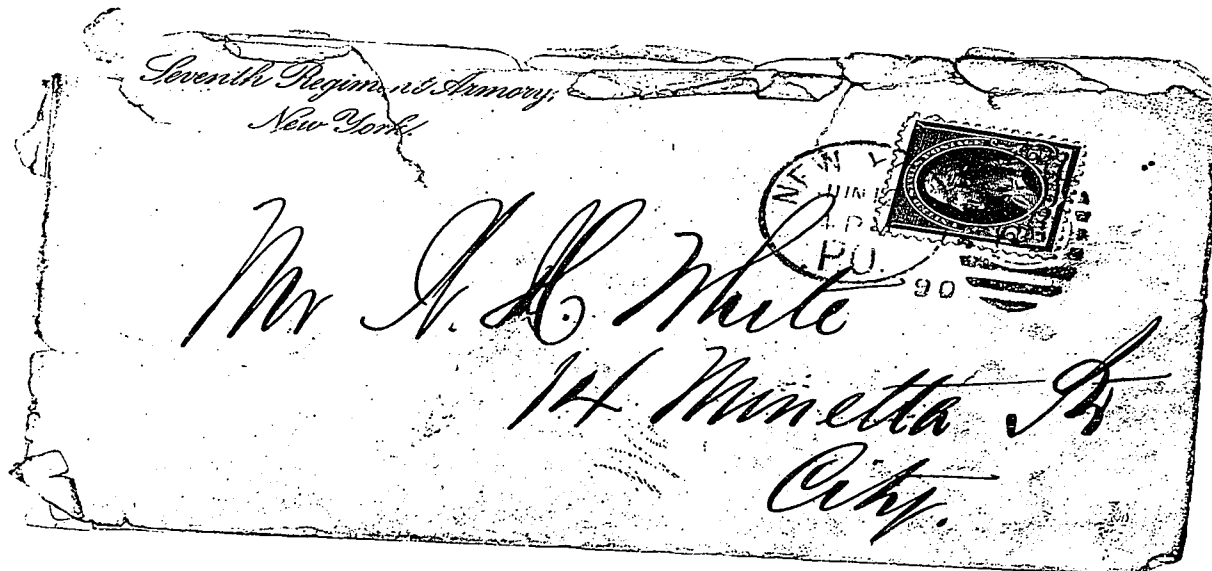 Seventh Regiment Armory,
New York.
NEW Y
JUN
P.O.
90
Mr N. H. White
14 Minetta St
City.